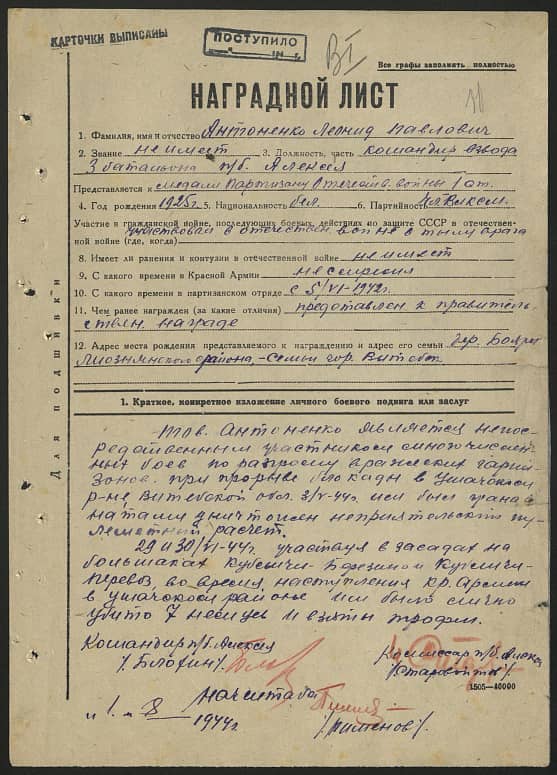 КАРТОЧКИ ВЫПИСАНЫ
ПОСТУПИЛО
Все графы заполнять полностью
НАГРАДНОЙ ЛИСТ
1. Фамилия, имя и отчество Антоненко Леонид Павлович
2. Звание не имеет 3. Должность, часть командир взвода
3 батальона п/б. Алексея
Представляется к медали Партизану Отечеств. войны I ст.
4. Год рождения 1925 г. 5. Национальность бел. 6. Партийность
Участие в гражданской войне, последующих боевых действиях по защите СССР и отечествен-
ной войне (где, когда) участвовал в отечествен войне в тылу врага
8. Имеет ли ранения и контузии в отечественной войне не имеет
9. С какого времени в Красной Армии не служил
10. С какого времени в партизанском отряде с 5/VI-1942г.
11. Чем ранее награжден (за какие отличия) представлен к правитель
ствен. награде
12. Адрес места рождения представляемого к награждению и адрес его семьи дер.
Лиознянского района, - семьи гор. Витебск
Для подшивки
1. Краткое, конкретное изложение личного боевого подвига или заслуг
Тов. Антоненко является непос-
редственным участником многочислен-
ных боев по разгрому вражеских гарни-
зонов. При прорыве блокады в Ушачском
р-не Витебской обл. 3/V-44г. им был грана-
натами уничтожен неприятельский пу-
леметный расчет.
29 и 30/VI-44г. участвуя в засадах на
большаках Кубличи-Березино и Кубличи-
во время наступления Кр. Армии
в Ушачском районе им было лично
убито 7 немцев и взяты трофеи.
Командир п/б. Алексея
/Блохин/
Комиссар п/б. Алексея
/Старовойтов/
1505—40000
Нач. штаба
"1." 8 1944г.
/Пименов/